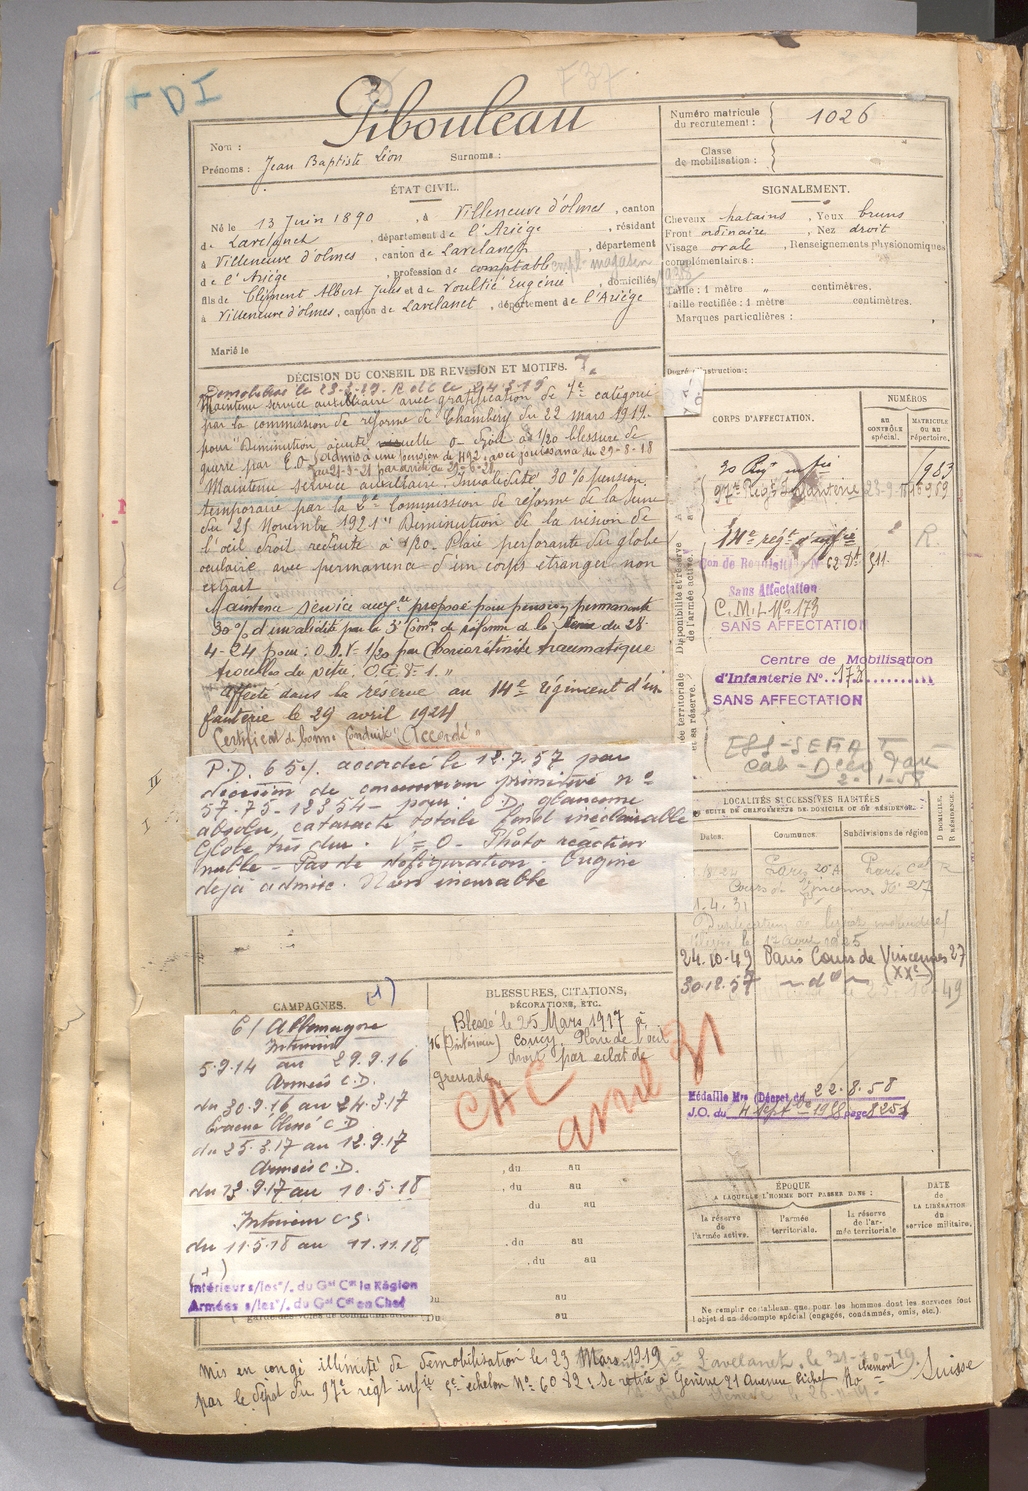 + DI
737
Pibouleau
Nom :
Prénoms : Jean Baptiste Léon Surnoms :
Numéro matricule du recrutement : 1026
Classe de mobilisation :
ÉTAT CIVIL.
Né le 13 Juin 1890, à Villeneuve d'olmes, canton
de Lavelanet, département de l'Ariège, résidant
à Villeneuve d'olmes, canton de Lavelanet, département
de l'Ariège, profession de comptable empl. magasin
fils de Clément Albert Jules et de Voultié Eugénie, domiciliés
à Villeneuve d'olmes, canton de Lavelanet, département de l'Ariège
Marié le
SIGNALEMENT.
Cheveux hatains, Yeux bruns
Front ordinaire, Nez droit
Visage ovale, Renseignements physionomiques
complémentaires :
Taille : 1 mètre " centimètres.
Taille rectifiée : 1 mètre centimètres.
Marques particulières :
DÉCISION DU CONSEIL DE RÉVISION ET MOTIFS.
Maintenu service auxiliaire avec gratification de 7e catégorie
par la commission de réforme de Chambéry du 22 mars 1919.
pour Diminution acuité visuelle O. droit à 1/20 blessure de
guerre par E.O. admis à une pension de 492 avec jouissance du 29-8-18
Maintenu service auxiliaire. Invalidité 30% pension
temporaire par la 2e Commission de réforme de la Seine
du 21 Novembre 1921 " Diminution de la vision de
l'oeil droit réduite à 1/20. Plaie perforante du globe
oculaire avec permanence d'un corps étranger non
extrait
Maintenu service auxre proposé pour pension permanente
30% d'invalidité par la 3e Comon de réforme de la Seine du 28-
4-24 pour : O.D.V = 1/20 par Choriorétinite traumatique
O.G.V=1. "
Affecté dans la réserve au 14e régiment d'in
fanterie le 29 avril 1924
Certificat de bonne Conduite "Accordé"
P.D. 65% accordée le 12.7.57 par
décision de concession primitive no
57-75-12354- pour : O D glaucome
absolu, cataracte totale fond inéclairable
Globe très dur. V = 0 - Photo réaction
nulle - Pas de défiguration - Origine
déjà admise. Non incurable
Degré d'instruction :
CORPS D'AFFECTATION.
NUMÉROS
au CONTRÔLE spécial.
MATRICULE ou au répertoire.
Disponibilité et réserve de l'armée active.
97me Régt Infanterie
14e régt d'infie
R.
62 Dt 511.
Sans Affectation
C.M.I. No 173
SANS AFFECTATION
Centre de Mobilisation
d'Infanterie No. 173
SANS AFFECTATION
LOCALITÉS SUCCESSIVES HABITÉES
PAR SUITE DE CHANGEMENTS DE DOMICILE OU DE RÉSIDENCE.
Dates.
Communes.
Subdivisions de région
D DOMICILE, R RÉSIDENCE.
Paris 20e
1.4.31
24.10.49 Paris Cours de Vincennes 27
(XXe)
30.12.57 — do —
CAMPAGNES. (1)
C/ Allemagne
Intérieur
5.9.14 au 29.9.16
Armées C.D.
du 30.9.16 au 24.3.17
blessé C.D
du 25.3.17 au 12.9.17
Armées C.D.
du 13.9.17 au 10.5.18
Intérieur C.S.
du 11.5.18 au 11.11.18
(1)
Intérieur s/les o/. du Gal Ct la Région
Armées s/les o/. du Gal Ct en Chef
BLESSURES, CITATIONS,
DÉCORATIONS, ETC.
Blessé le 25 Mars 1917 à
Coucy. Plaie de l'oeil
droit par éclat de
grenade
CAC
avril 31
Médaille Mre (Décret du 22.8.58
J.O. du 4 septbre 1958 page 8251
, du au
, du au
du au
, du au
, du au
Du au
au
ÉPOQUE
A LAQUELLE L'HOMME DOIT PASSER DANS :
la réserve de l'armée active.
l'armée territoriale.
la réserve de l'armée territoriale
DATE de LA LIBÉRATION du service militaire.
Ne remplir ce tableau que pour les hommes dont les services font
l'objet d'un décompte spécial (engagés, condamnés, omis, etc.).
Mis en congé illimité de démobilisation le 23 Mars 1919
par le dépôt du 97e régt infie 5e échelon No 6082 : Se retire à Genève 21 Avenue Pictet Rochemont Suisse